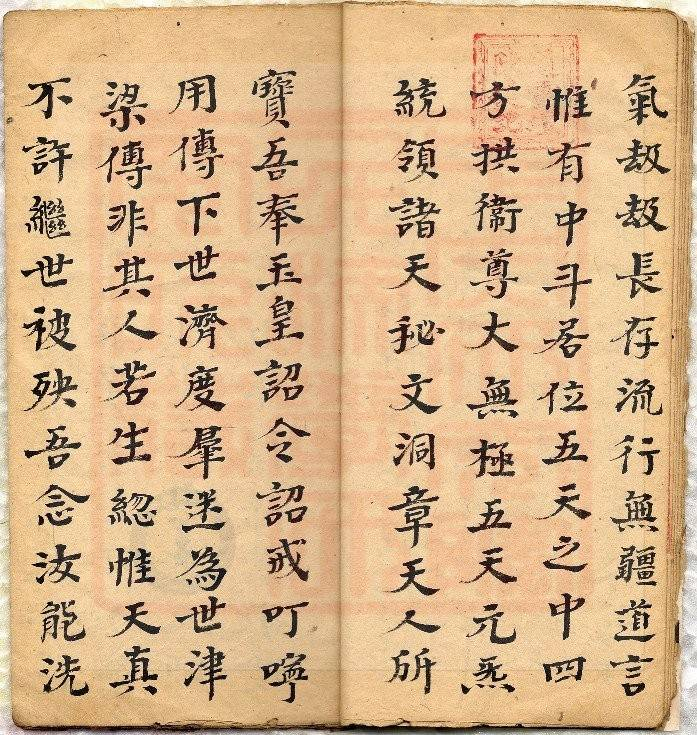 氣刼刼長存流行無疆道言
惟有中斗居位五天之中四
方拱衛尊大無極五天元炁
統領諸天祕文洞章天人所
寶吾奉玉皇詔令詔戒叮嚀
用傳下世濟度羣迷為世津
梁傳非其人若生緫惟天真
不許繼世被殃吾念汝能洗